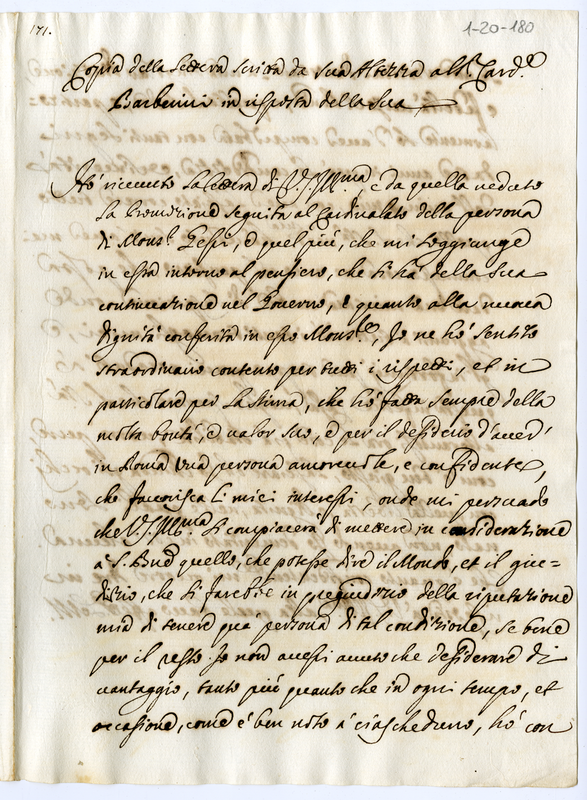 171.
1-20-180
Copia della Lettera scritta da sua Altezza al Sr. Card.le
Barberini in risposta della sua
Hò riceuuto la lettera di V.S.Ill.ma, e da quella ueduto
la Promozione seguita al Cardinalato della persona
di Mons.r Gessi, e quel più, che mi soggiunge
in essa intorno al pensiero, che si hà della sua
continuazione nel Gouerno, e quanto alla nuoua
dignità conferita in esso Mons.re, Io ne hò sentito
straordinario contento per tutti i rispetti, et in
particolare per la stima, che hò fatta sempre della
molta bontà, e ualor suo, e per il desiderio d'auer
in Roma una persona amoreuole, e confidente,
che fauorisca li miei interessi, onde mi persuado
che V.S.Ill.ma si compiacerà di mettere in considerazione
à S. Bne quello, che potesse dire il Mondo, et il giu=
dizio, che si farebbe in pregiudizio della riputazione
mia di tenere quà persona di tal condizione, se bene
per il resto Io non auessi auuto che desiderare di
uantaggio, tanto più quanto che in ogni tempo, et
occasione, come è ben noto à ciascheduno, hò con